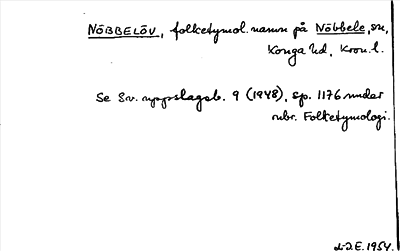 NÖBBELÖV, folketymol. namn på Nöbbele, sn,
Konga hd, Kron. l.
Se Sv. uppslagsb. 9 (1948), sp. 1176 under
rubr. Folketymologi.
J.E. 1954.